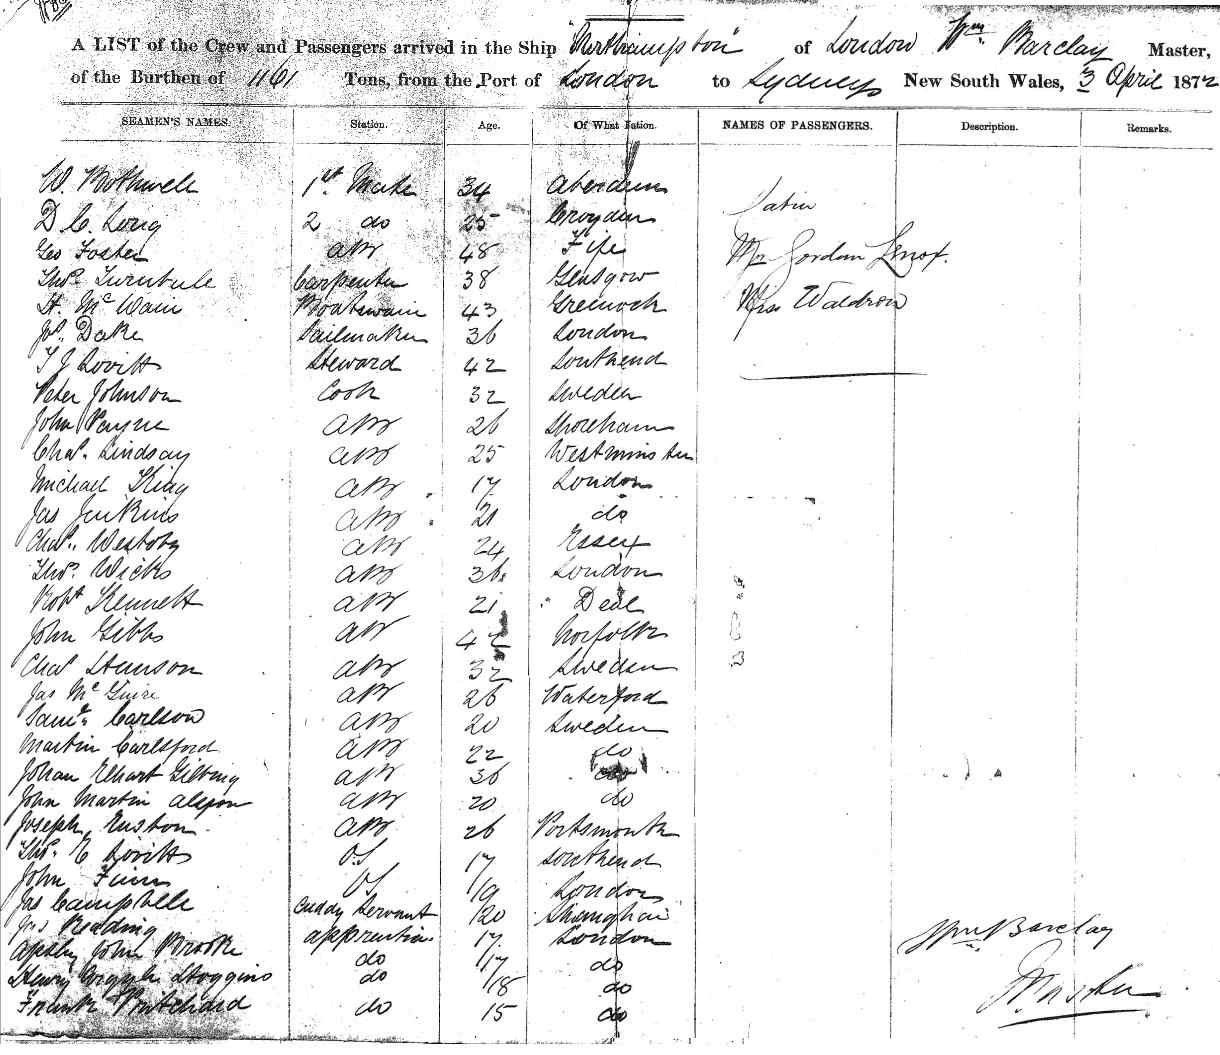 A LIST of the Crew and Passengers arrived in the Ship "Northampton" of London Wm. Barclay Master,
of the Burthen of 1161 Tons, from the Port of London to Sydney New South Wales, 3 April 1872
SEAMEN'S NAMES. Station. Age. Of What Nation. NAMES OF PASSENGERS. Description. Remarks.
W. Bothwell 1st Mate 34 Aberdeen
D. C. Long 2 do 25 Croyden
Geo Foster AB 48 Fife
Thos. Turnbull Carpenter 38 Glasgow
H. McVain Boatswain 43 Greenock
Js. Dake Sailmaker 36 London
T J Lovitt Steward 42 Southend
Peter Johnson Cook 32 Sweden
John Payne AB 26 Shoreham
Chas. Lindsay AB 25 Westminster
Michael King AB 17 London
Jas Jenkins AB 21 do
Chas. Westoby AB 24 Essex
Thos. Wicks AB 36 London
Robt Kennett AB 21 Deal
John Gibbs AB 42 Norfolk
Chas AB 32 Sweden
Jas McGuire AB 26 Waterford
Saml. Carlson AB 20 Sweden
Martin Carlsford AB 22 do
Johan AB 36 do
John Martin AB 20 do
Joseph Ruston AB 26 Portsmouth
Thos. E Lovitt OS 17 Southend
John Finn OS 19 London
Jas Campbell Cuddy Servant 20 Shanghai
Jas Reading apprentice 17 London
Apsley John Brooke do 17 do
Henry Stoggins do 18 do
Frank Pritchard do 15 do
Mr Gordon Lenox.
Miss Waldron
Wm. Barclay
Master